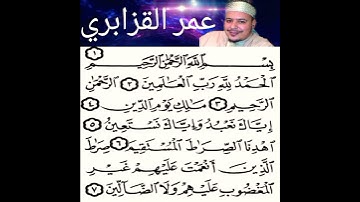 عمر القزابري
١
بِسْمِ ٱللَّهِ ٱلرَّحْمَٰنِ ٱلرَّحِيمِ
ٱلْحَمْدُ لِلَّهِ رَبِّ ٱلْعَٰلَمِينَ ٢ ٱلرَّحْمَٰنِ
ٱلرَّحِيمِ ٣ مَٰلِكِ يَوْمِ ٱلدِّينِ ٤
إِيَّاكَ نَعْبُدُ وَإِيَّاكَ نَسْتَعِينُ ٥
ٱهْدِنَا ٱلصِّرَٰطَ ٱلْمُسْتَقِيمَ ٦ صِرَٰطَ
ٱلَّذِينَ أَنْعَمْتَ عَلَيْهِمْ غَيْرِ
ٱلْمَغْضُوبِ عَلَيْهِمْ وَلَا ٱلضَّآلِّينَ ٧